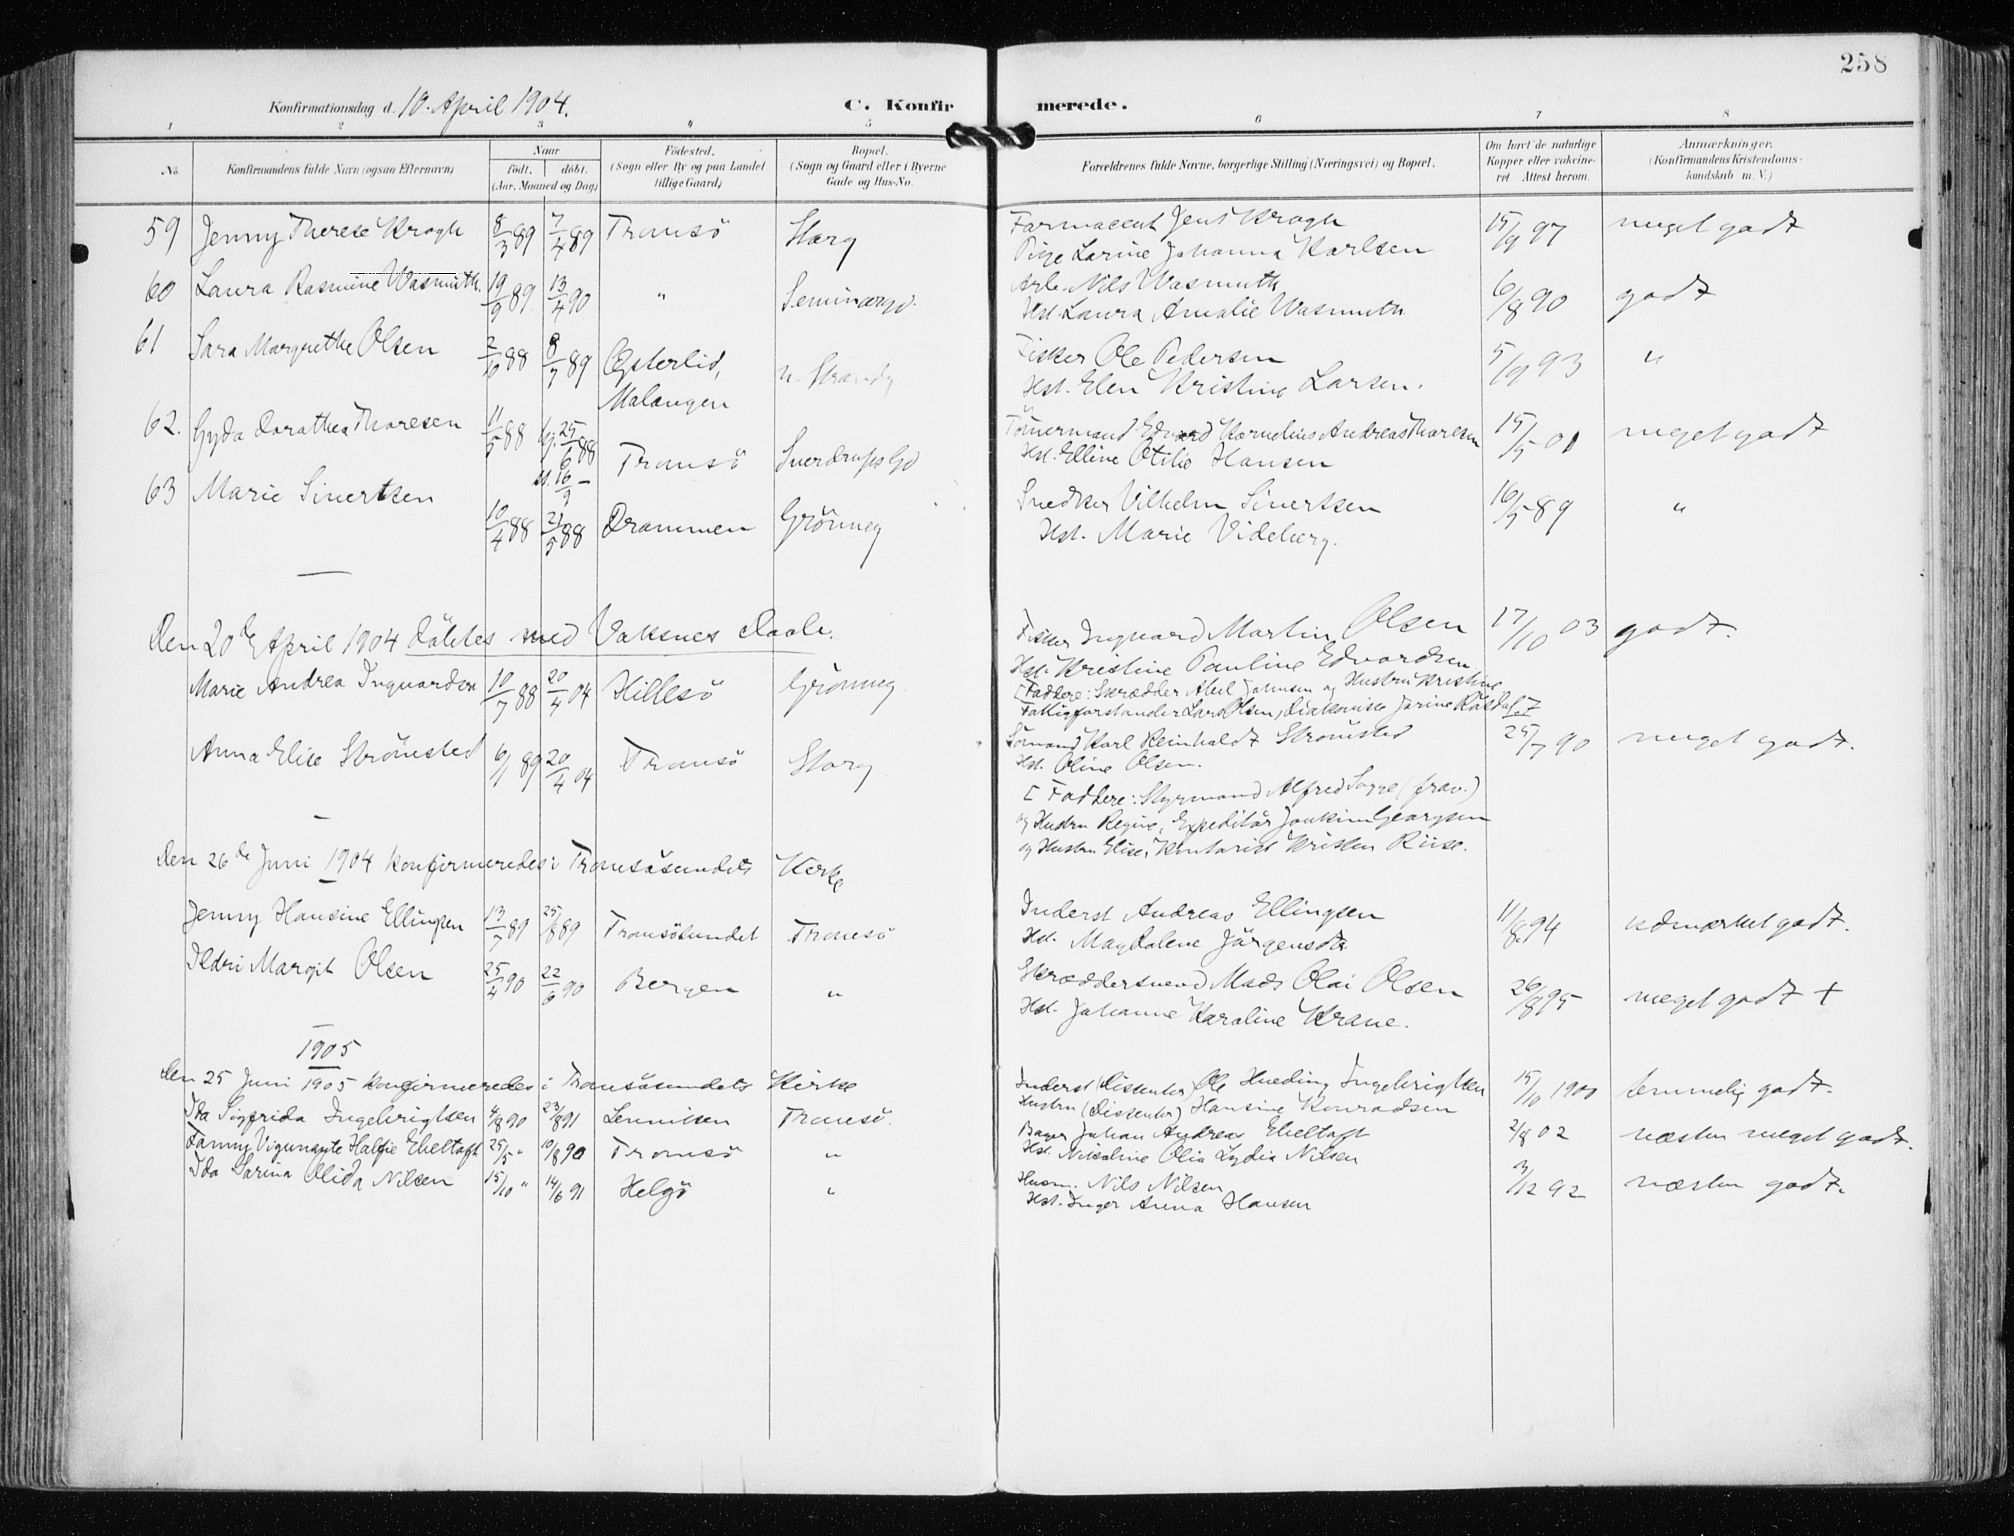 258
Konfirmationsdag d. 10. April 1904.
C. Konfirmerede.
1 2 3 4 5 6 7 8
No. Konfirmandens fulde Navn (ogsaa Efternavn) Naar födt. döbt. (Aar, Maaned og Dag) Födested. (Sogn eller By og paa Landet tillige Gaard) Bopæl. (Sogn og Gaard eller i Byerne Gade og Hus-No. Forældrenes fulde Navne, borgerlige Stilling (Næringsvei) og Bopæl. Om havt de naturlige Kopper eller vakcineret Attest herom. Anmærkninger. (Konfirmandens Kristendomskundskab m. V.)
59 Jenny Therese Krogh 8/3 89 7/4 89 Tromsö Storg Farmaceut Jens Krogh 15/9 97 meget godt
Pige Larine Johanna Karlsen
60 Laura Rasmine Wasmuth 19/9 89. 13/4 90 " Seminargd. Arb. Nils Wasmuth 6/8 90 godt
Hst. Laura Amalie Wasmuth
61 Sara Margrethe Olsen 2/10 88 8/7 89 Østerlid, Malangen n. Strandg Fisker Ole Pedersen 5/9 93 "
Hst. Elen Kristine Larsen.
62. Gyda Dorathea Thoresen 11/5 88 hj. 25/6 88 st. 16/9 – Tromsö Sverdrups Gd Tömermand Edvard Kornelius Andreas Thoresen 15/5 01 meget godt
Hst. Elline Otilie Hansen
63 Marie Sivertsen 10/4 88 21/5 88 Drammen Grönneg Snedker Vilhelm Sivertsen 16/5 89 "
Hst. Marie Videberg.
Den 20de April 1904 döbtes med Voksnes Daab.
Marie Andrea Ingvardsen 10/7 88 20/4 04 Hillesö Grönneg. Fisker Ingvard Martin Olsen 17/10 03 godt.
Hst. Kristine Pauline Edvardsen
[Faddere: Skrædder Abel Johnsen og Hustru Kristine
Fattigforstander Lars Olsen, Diakonisse Jörine Röisdal.]
Anna Elise Strömsted 6/1 89 20/4 04 Tromsö Storg. Sömand Karl Reinholdt Strömsted 25/7 90 meget godt.
Hst. Oline Olsen.
[Faddere: Styrmand Alfred (frav.)
og Hustru Regine, Expeditör Joakim Georgsen
og Hustru Elise, Kontorist Kristen Riise.
Den 26de Juni 1904 konfirmeredes i Tromsösundets Kirke
Jenny Hansine Ellingsen 13/7 89 25/8 89 Tromsösundet Tromsö Inderst Andreas Ellingsen 11/8 94 udmærket godt.
Hst. Magdalene Jörgensdtr
Ildri Margit Olsen 25/4 90 22/6 90 Bergen " Skræddersvend Mads Olai Olsen 26/8 95 meget godt +
Hst. Johanne Karoline Krane.
1905
Den 25 Juni 1905 konfirmeredes i Tromsösundets Kirke
Ida Sigfrida Ingebrigtsen 4/8 90 23/8 91 Tromsö. Inderst (Dissenter) Ole Hveding Ingebrigtsen 15/10 1900 temmelig godt.
Hustru (Dissenter) Hansine Konradsen
Fanny Halfie Ebeltoft 25/5 " 10/8 90 Tromsö " Bager Johan Andreas Ebeltoft 2/8 02 næsten meget godt.
Hst. Nikoline Olia Lydia Nilsen
Ida Sarina Olida Nilsen 15/10 " 14/6 91 Helgö " Husm. Nils Nilsen 3/12 92 næsten godt.
Hst. Inger Anna Hansen